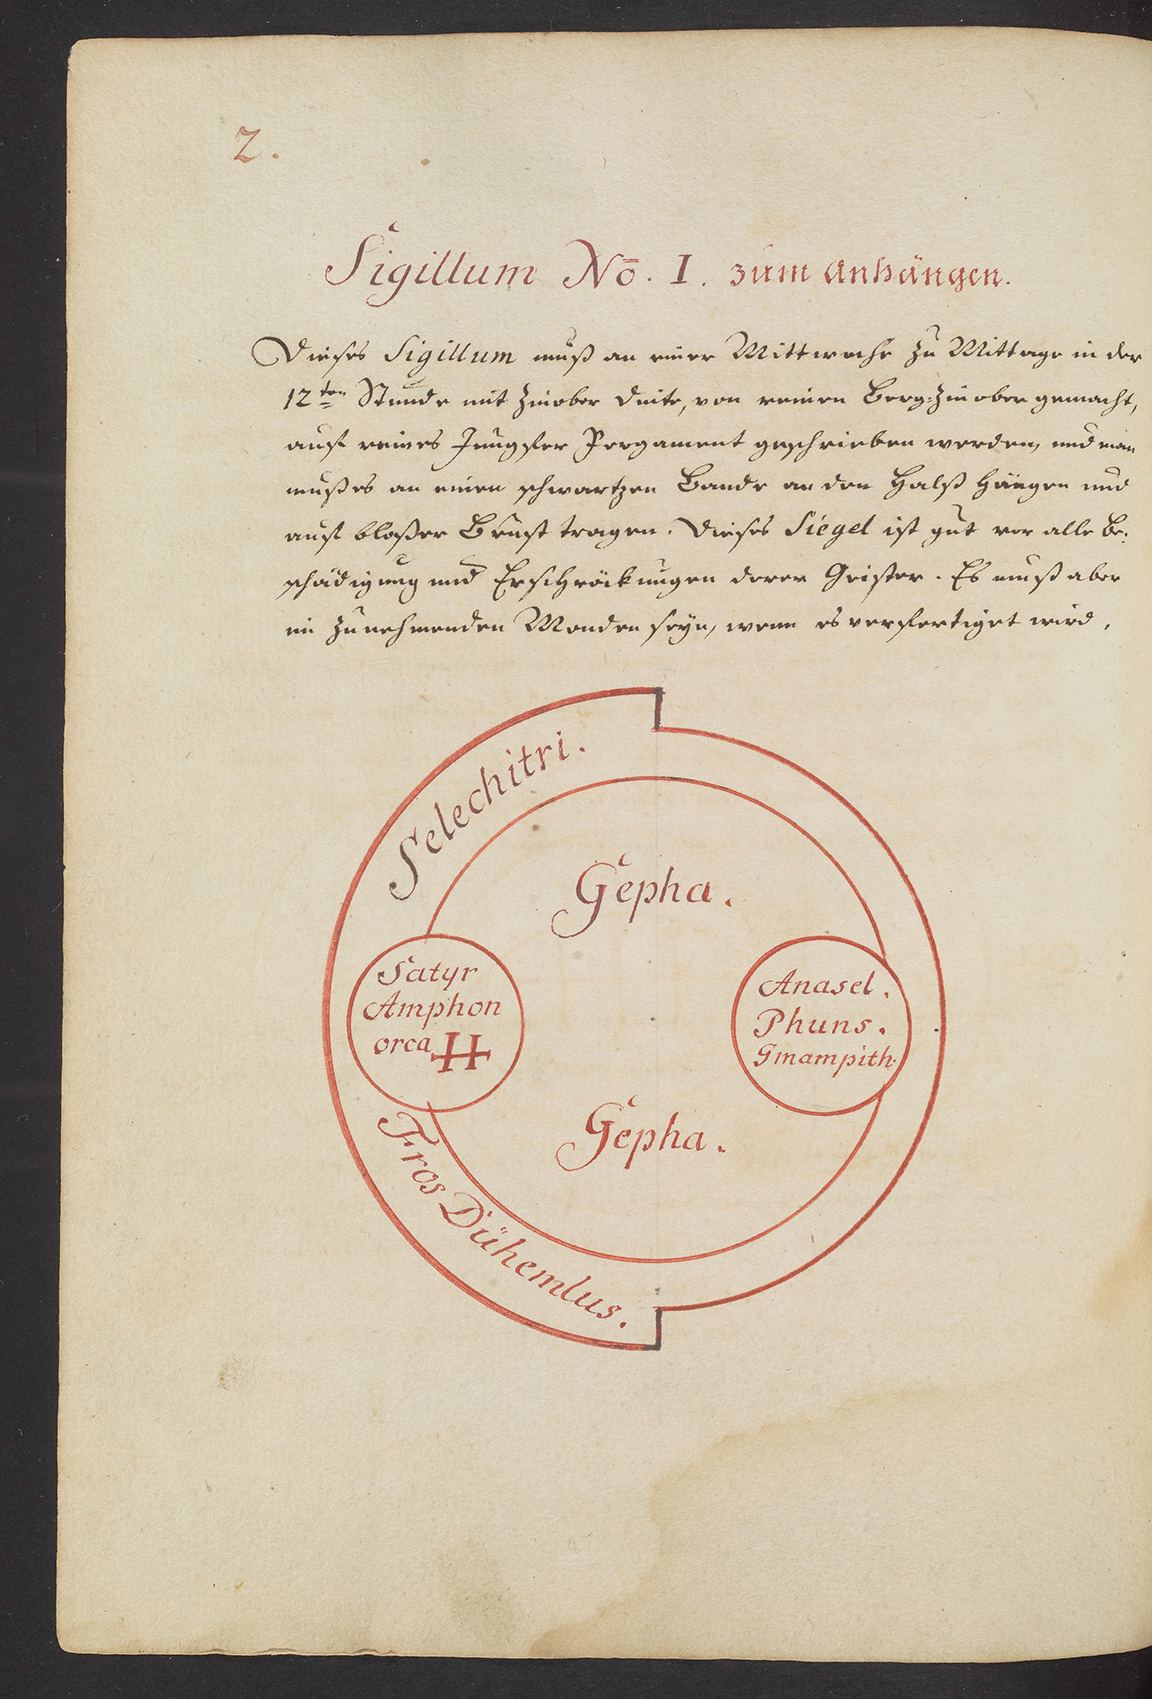 2.
Sigillum No. I. zum Anhängen.
Dieses Sigillum muß an einer Mittwoche zu Mittage in der
12ten Stunde mit Zinober Dinte, von reinen Berg-Zinober gemacht,
auf reines Jungfer Pergament geschrieben werden, und man
muß es an einen schwartzen Bande an den Halß hängen und
auf bloßer Brust tragen. Dieses Siegel ist gut vor alle Be:
schädigung und Erschröckungen derer Geister. Es muß aber
im zunehmenden Monden seyn, wenn es verfertiget wird.
Selechitri.
Gepha.
Satyr
Amphon
orca
Anasel.
Phuns.
Gmampith.
Gepha.
Fros Dühemlus.